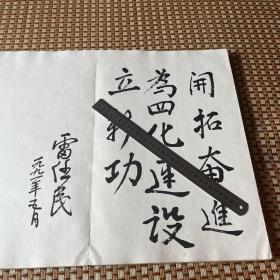 開拓奮進
為四化建設
立新功
雷任民
一九九一年元月